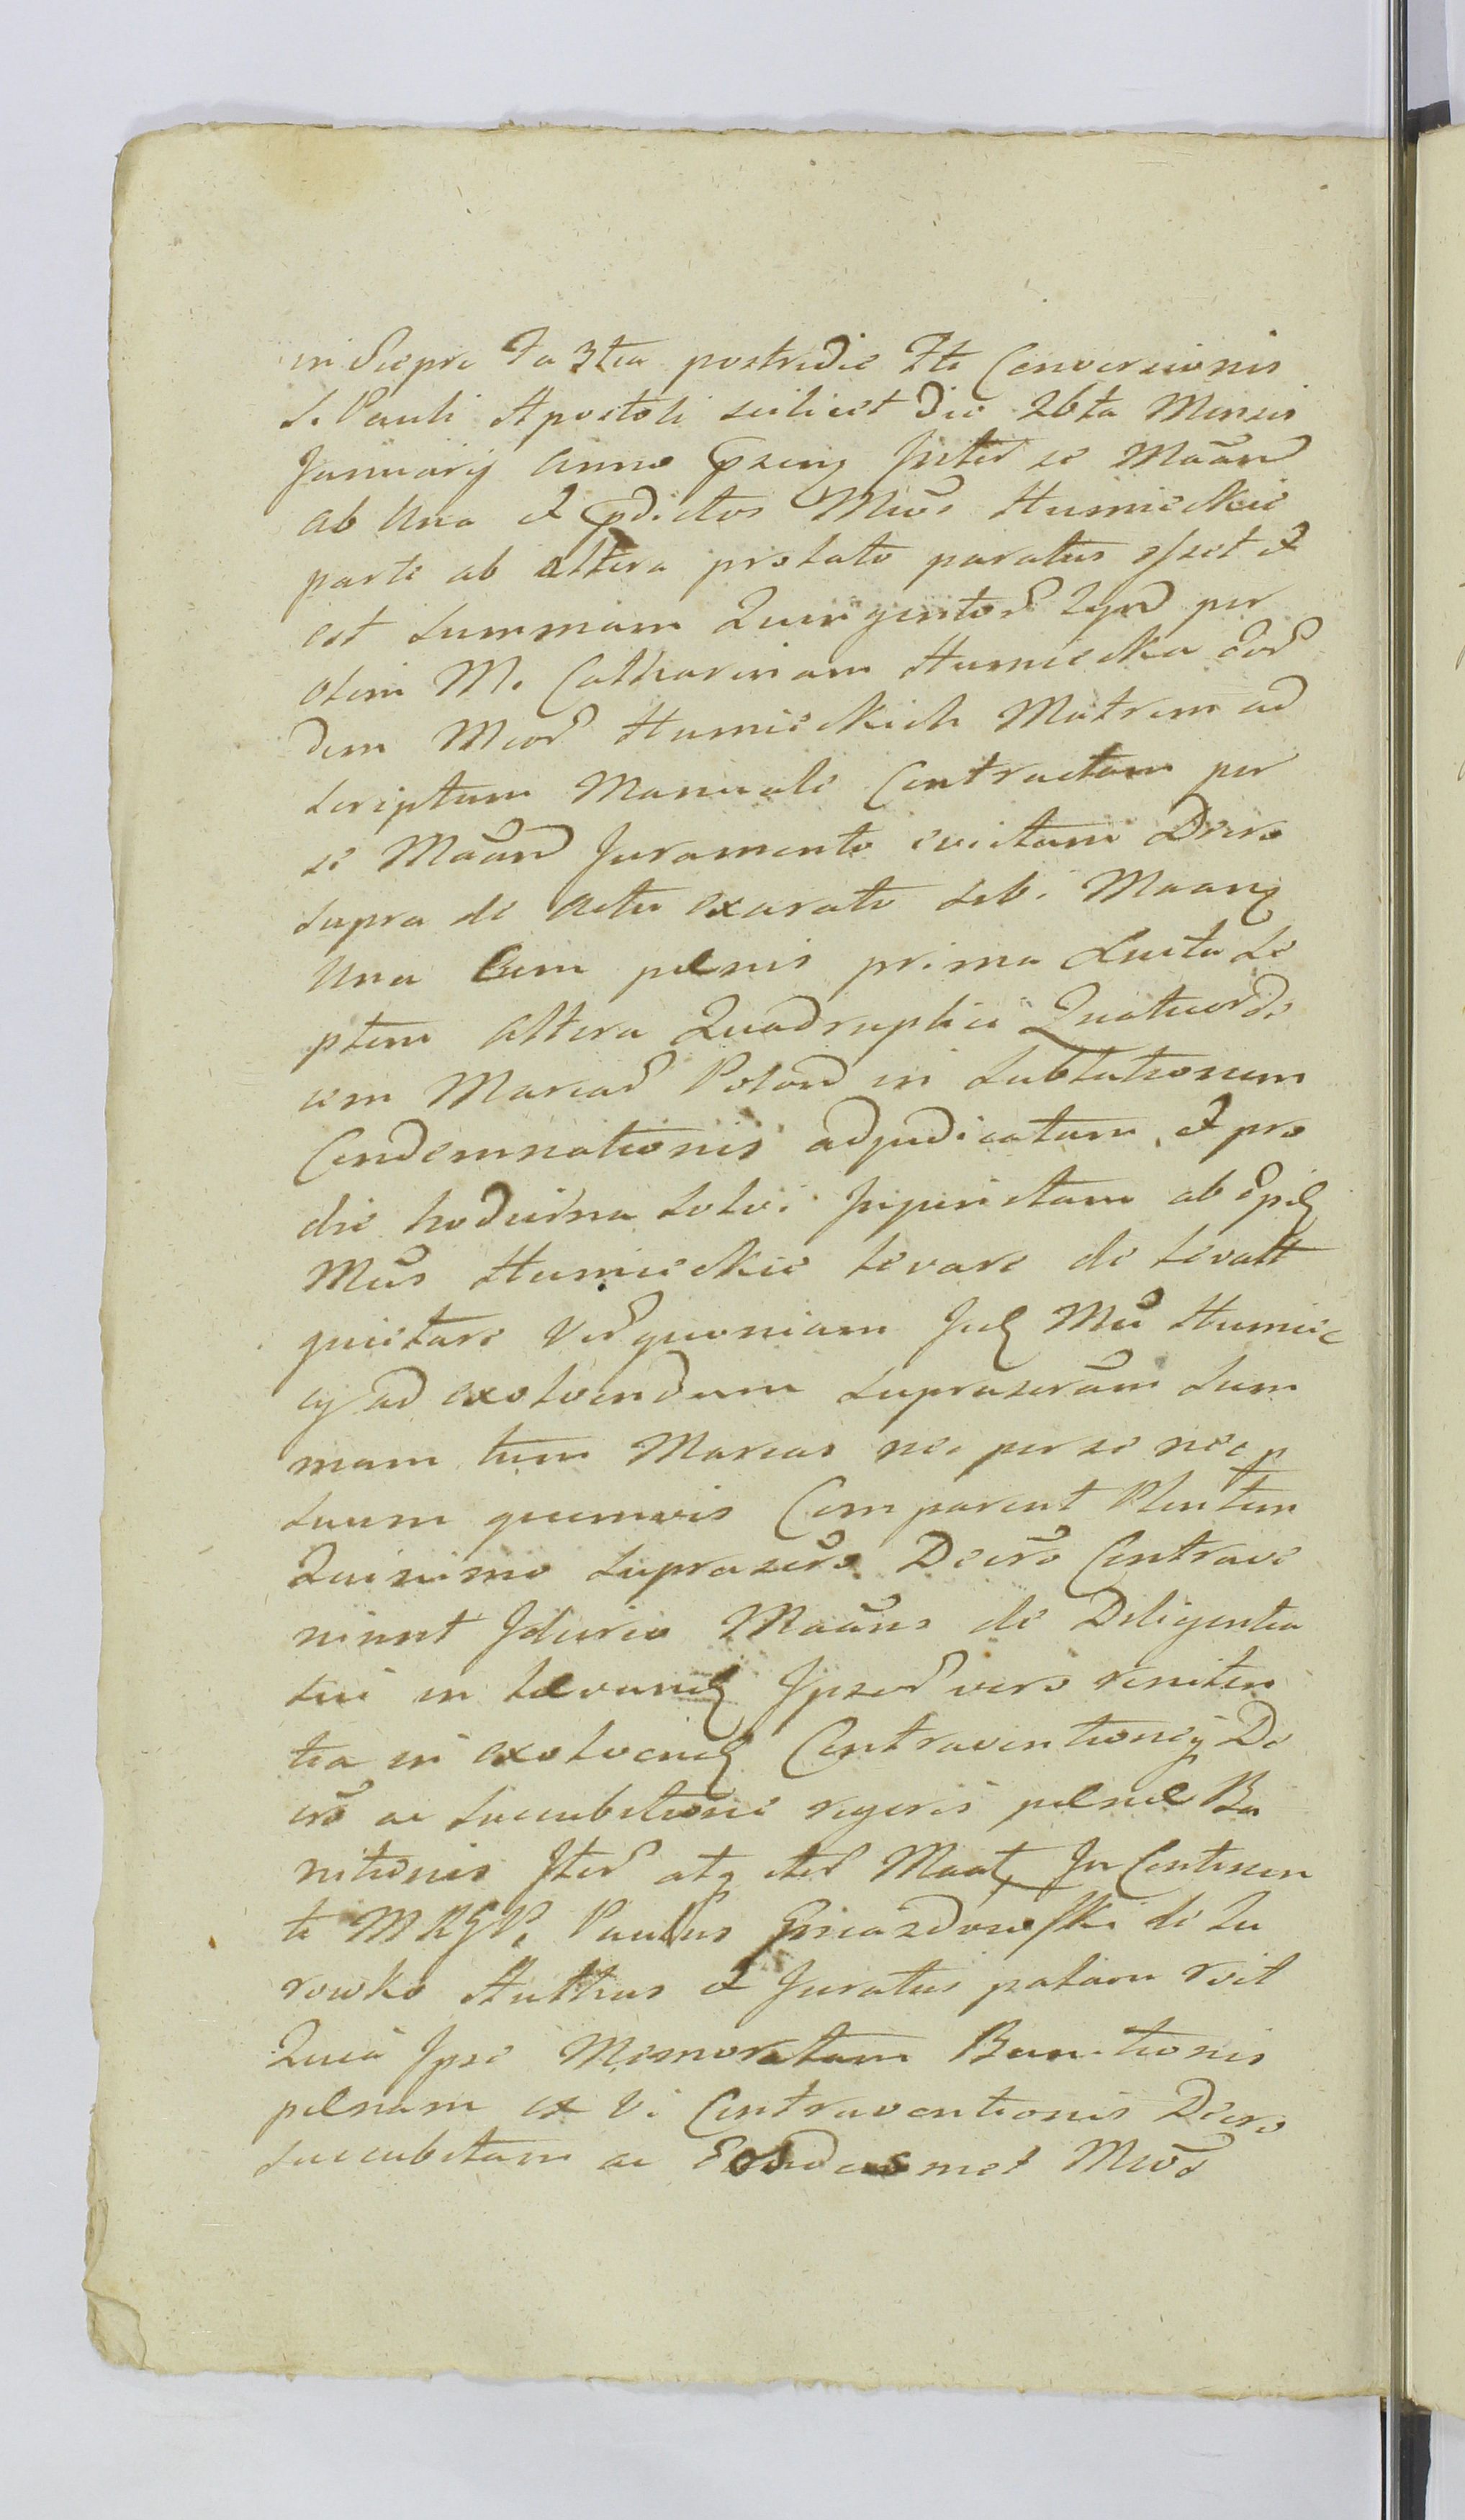 in Siepre Fa 3tia postridie Fti Conversionis
S. Pauli Apostoli scilicet Die 26ta Mensis
January Anno pzenj Inter se Maand
ab Una et pdictos Mwos Humieckie
parte ab altera prolato paratus esset et
est Summam Quingentor Zynd per
olim M. Catharinam Humiecka eor
dem Mwor Humieckich Matrem ad
Scriptum Manuale Contractam per
se Maand Juramento evictam Dcrro
supra de actu exarato Sibi Maanq
Una Cum poenis prima Luita Se
ptem altera Quadruplici Quatuorde
cem Marcar Polond in Sublationem
Condemnationis adjudicatam et pro
die hodierna Solvi Injunctam ab
Mws Humieckie levare de levatt
quietare Ver quoniam Mw Humie
cy ad exolvendam Suprascram Sum
mam tum Marcas nec per se nec p
Suum quemvis Comparent Plentem
Quinimo Suprascro Decro Contrave
niunt Ideireo Maans de Diligentia
Sui in levand Ipsor vero reniten
tia in exolvend Contraventioney De
cro ac Succubitione regeris poenae Ba
nitionis Iter atq iter Maat In Continen
ti MRGP. Paulus Gniazdowski de Zu
rowko Authus et Juratus palam rvit
Quia Ipse Memoratam Banitionis
poenam ex Vi Contraventionis Dcro
Succubitam ac Eosdemmet Mwos